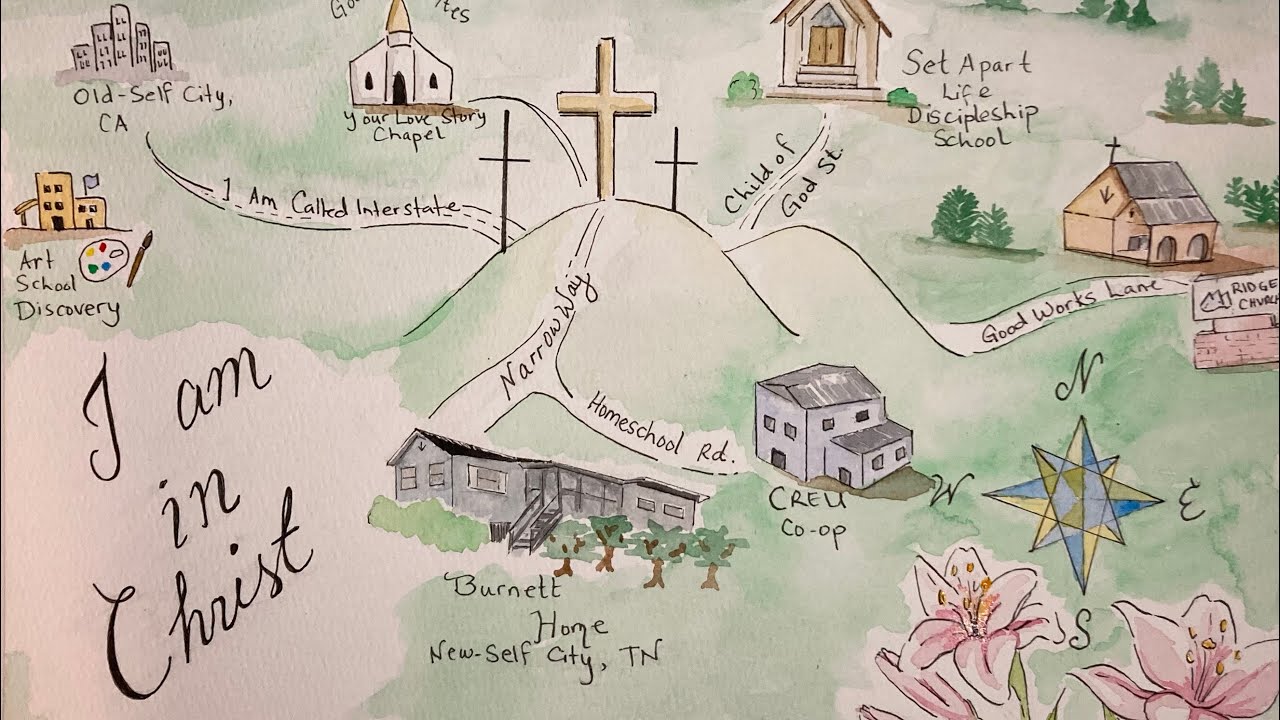 Old-Self City,
CA
Your Love Story
Chapel
Set Apart
Life
Discipleship
School
I Am Called Interstate
Child of
God St.
Art
School
Discovery
Narrow Way
Good Works Lane
RIDGE
CHURCH
Homeschool Rd.
I am
in
Christ
CREU
Co-op
N
W
E
S
Burnett
Home
New-Self City, TN